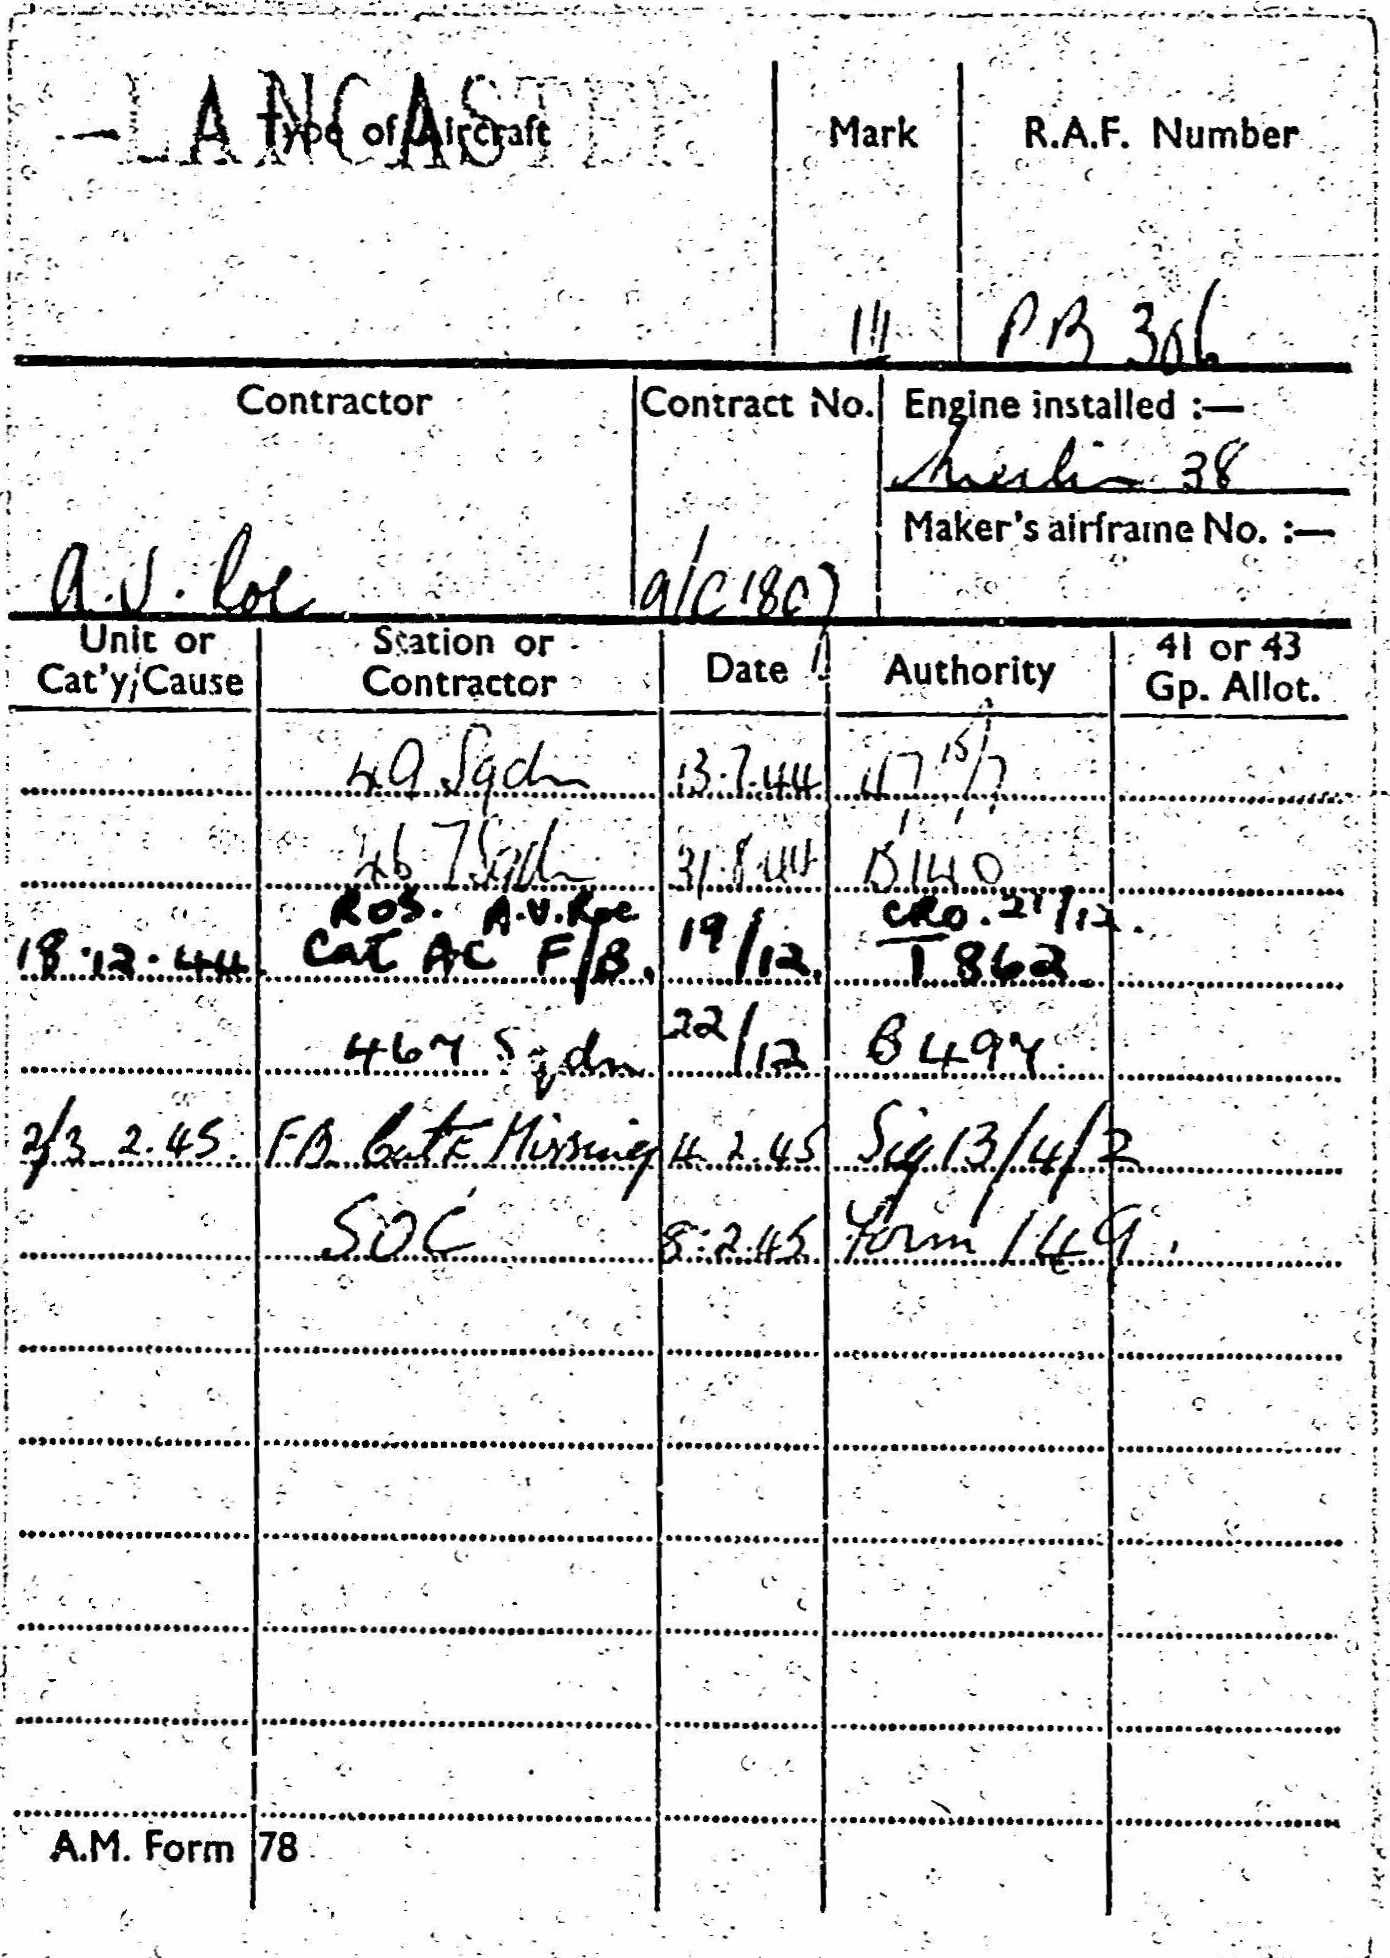 LANCASTER
Type of Aircraft
Mark
R.A.F. Number
III
PB 306
Contractor
Contract No.
Engine installed :—
Merlin 38
Maker's airframe No. :—
A.V. Roe
a/c 1807
Unit or Cat'y/Cause
Station or Contractor
Date
Authority
41 or 43 Gp. Allot.
49 Sqdn 13.7.44 117 15/7
467 Sqdn 31.8.44 B140
ROS. A.V.Roe CRO. 21/12.
18.12.44. Cat AC F/B. 19/12. T862.
467 Sqdn 22/12 B497.
2/3 2.45. FB Cat E Missing 4.2.45 Sig 13/4/2
SOC 8.2.45 Form 149.
A.M. Form 78